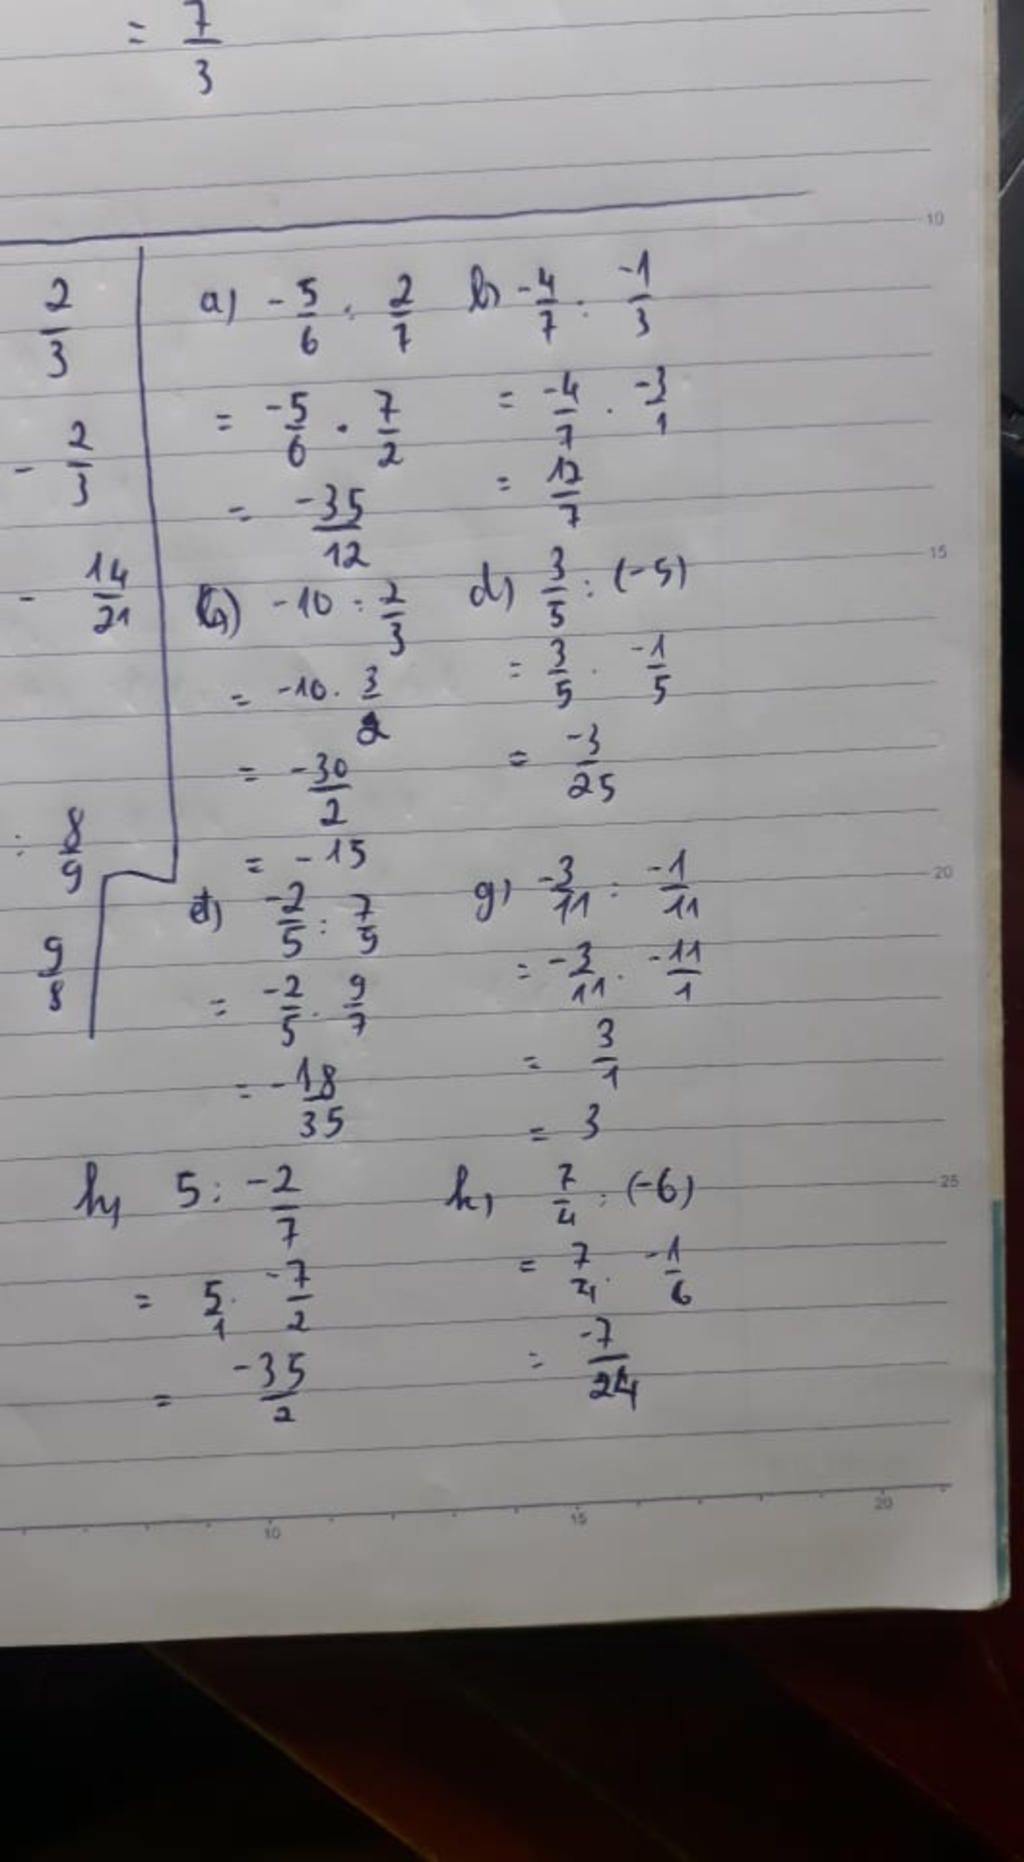 = 7/3
2/3
- 2/3
- 14/21
: 8/9
9/8
a) -5/6 : 2/7
= -5/6 . 7/2
= -35/12
b) -4/7 : -1/3
= -4/7 . -3/1
= 12/7
-10 : 2/3
= -10 . 3/2
= -30/2
= -15
d) 3/5 : (-5)
= 3/5 . -1/5
= -3/25
-2/5 : 7/9
= -2/5 . 9/7
= -18/35
g) -3/11 : -1/11
= -3/11 . -11/1
= 3/1
= 3
h) 5 : -2/7
= 5/1 . -7/2
= -35/2
k) 7/4 : (-6)
= 7/4 . -1/6
= -7/24
10
15
20
25
10 15 20